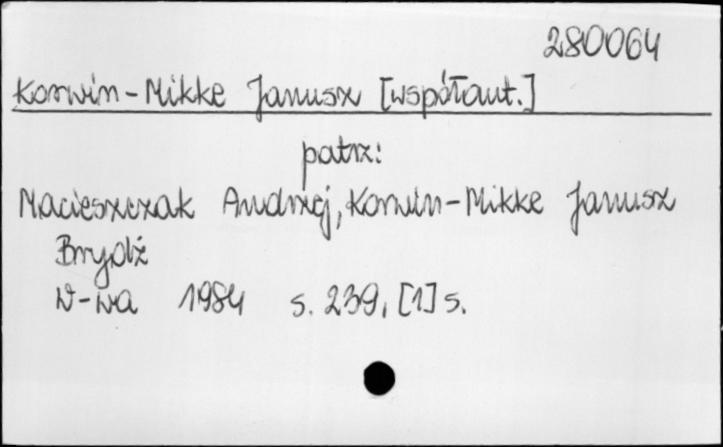 280064
Korwin-Mikke Janusz [współaut.]
patrz:
Macieszczak Andrzej, Korwin-Mikke Janusz
Brydż
W-wa 1984 s. 239, [1] s.